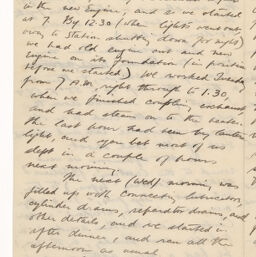 the new Engine, and we started
at 7. By 12:30 (when lights went out,
owing to Station shutting down for night)
we had old engine out and new
Engine on its foundation (in position
before we started) We worked Tuesday
from 7 A.M. right through to 1.30,
when we finished coupling exhaust
and had steam on to the
the last hour had been by lantern
light, and you bet most of us
slept in a couple of hours
next morning.
The next (Wed) morning was
filled up with connecting lubricators,
cylinder drains, separator drains, and
other details, and we started in
after dinner, and ran all the
afternoon as usual